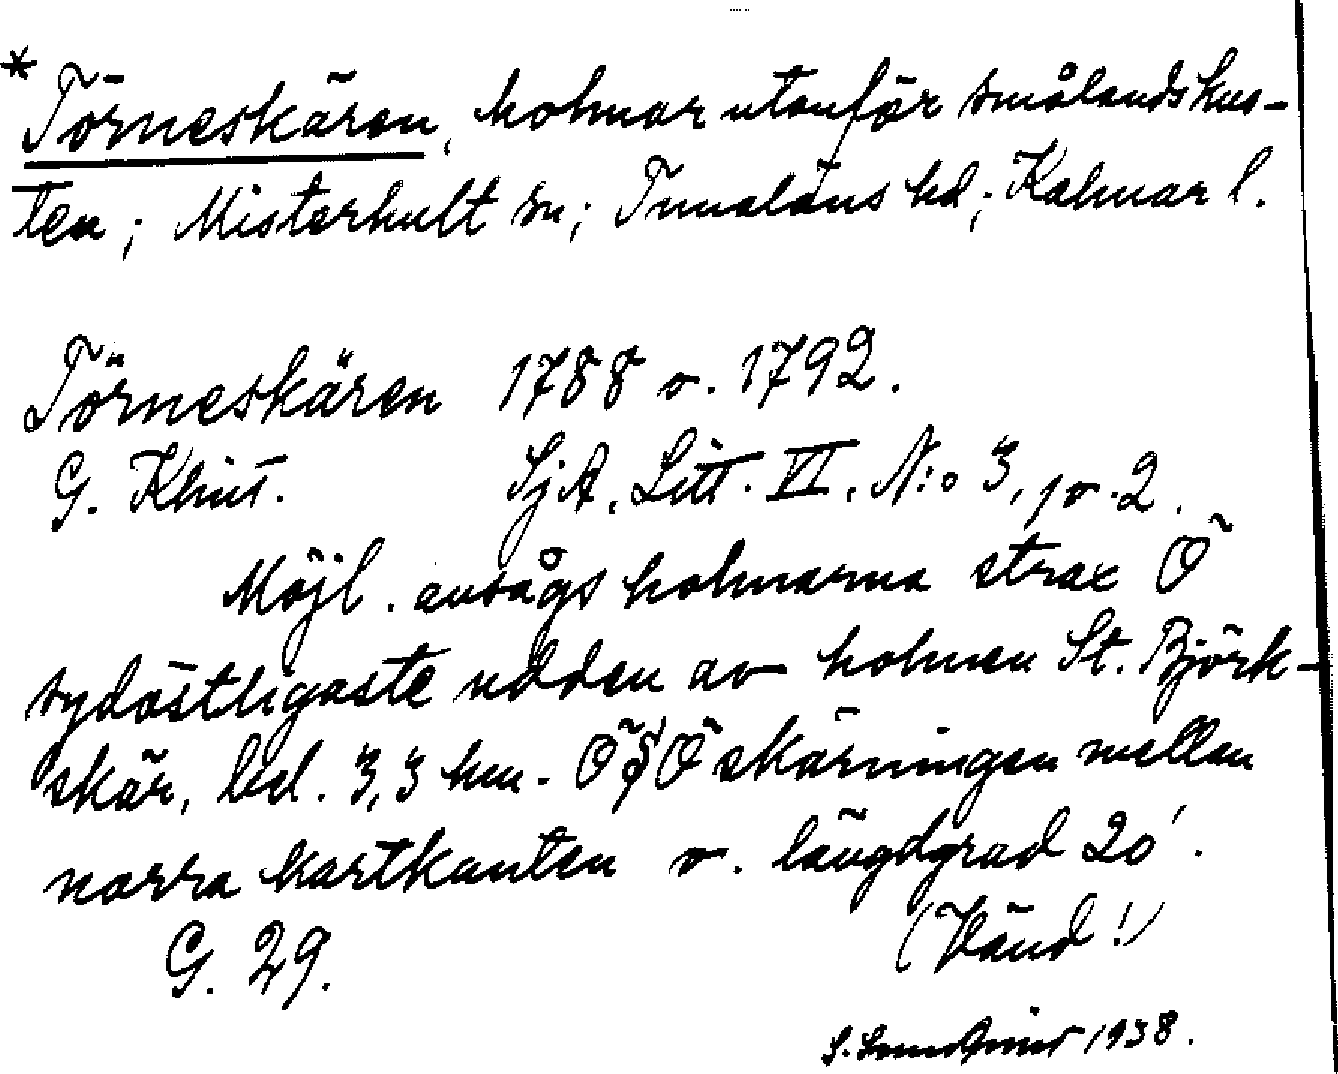 * Törneskären, holmar utanför smålandskus-
ten; Misterhult sn; Tunaläns hd; Kalmar l.
Törneskären 1788 o. 1792.
G. Klint. SjA, Litt. VI. N:o 3, 10.2.
Möjl. avsågs holmarna strax Ö
sydöstligaste udden av holmen St. Björk-
skär, bel. 3,3 km. ÖSÖ skärningen mellan
norra kartkanten o. längdgrad 20'.
G. 29. (Vänd!)
S. 1938.